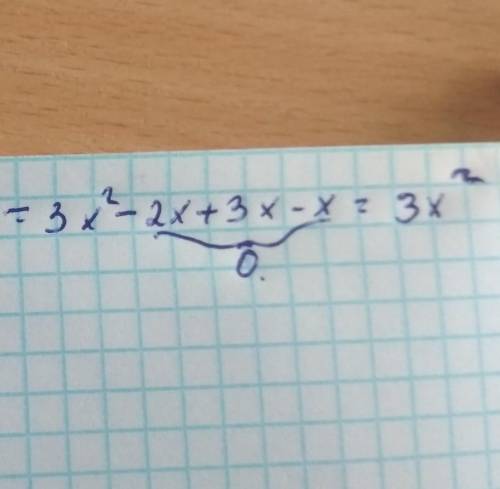 = 3x² - 2x + 3x - x = 3x²
0.